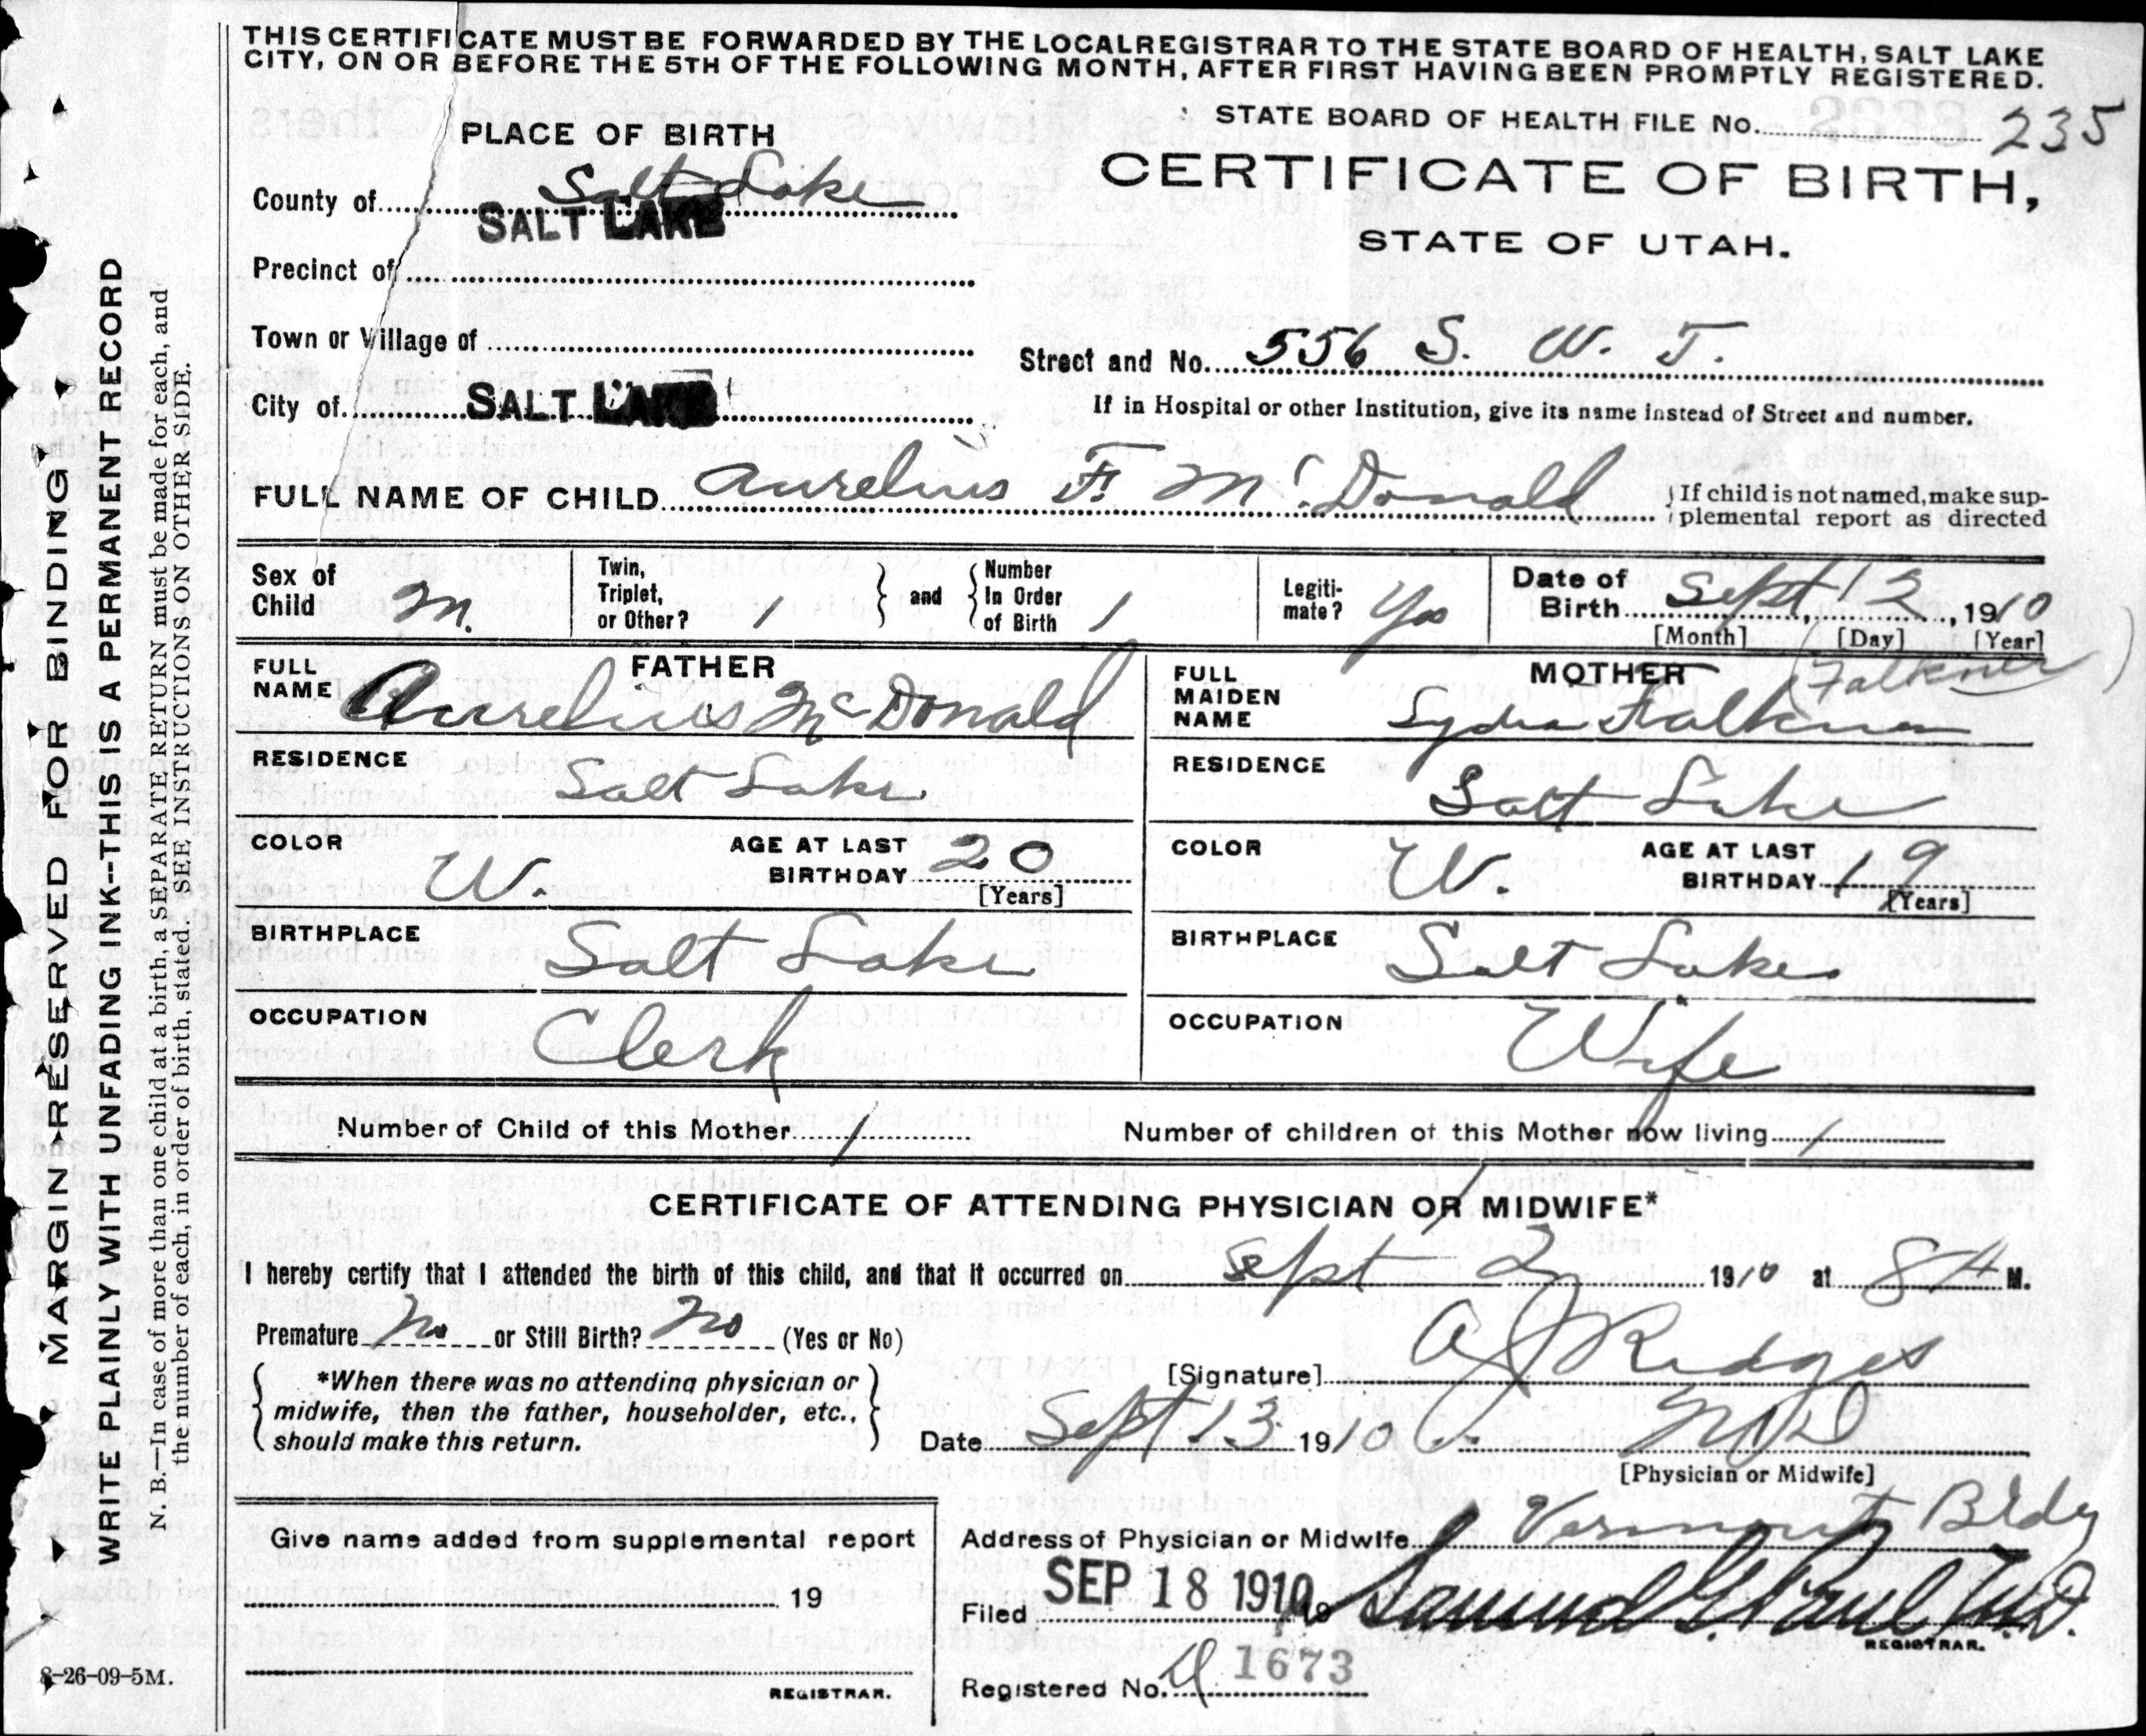 THIS CERTIFICATE MUST BE FORWARDED BY THE LOCAL REGISTRAR TO THE STATE BOARD OF HEALTH, SALT LAKE
CITY, ON OR BEFORE THE 5TH OF THE FOLLOWING MONTH, AFTER FIRST HAVING BEEN PROMPTLY REGISTERED.
STATE BOARD OF HEALTH FILE No. 235
PLACE OF BIRTH
CERTIFICATE OF BIRTH,
STATE OF UTAH.
County of Salt Lake
SALT LAKE
Precinct of
Town or Village of
Street and No. 556 S. W. T.
City of SALT LAKE
If in Hospital or other Institution, give its name instead of Street and number.
FULL NAME OF CHILD Aurelius F. McDonald
If child is not named, make sup-
plemental report as directed
Sex of Child M.
Twin, Triplet, or Other? 1
and
Number In Order of Birth 1
Legiti-mate? Yes
Date of Birth Sept 12, 1910
[Month] [Day] [Year]
FATHER
FULL NAME Aurelius McDonald
RESIDENCE Salt Lake
COLOR W.
AGE AT LAST BIRTHDAY 20
[Years]
BIRTHPLACE Salt Lake
OCCUPATION Clerk
MOTHER
(Falkner)
FULL MAIDEN NAME Lydia Falkner
RESIDENCE Salt Lake
COLOR W.
AGE AT LAST BIRTHDAY 19
[Years]
BIRTHPLACE Salt Lake
OCCUPATION Wife
Number of Child of this Mother 1
Number of children of this Mother now living 1
CERTIFICATE OF ATTENDING PHYSICIAN OR MIDWIFE*
I hereby certify that I attended the birth of this child, and that it occurred on Sept 12 1910 at 8 A M.
Premature No or Still Birth? No (Yes or No)
*When there was no attending physician or
midwife, then the father, householder, etc.,
should make this return.
[Signature] A J Ridges
Date Sept 13 1910 MD
[Physician or Midwife]
Give name added from supplemental report
19
REGISTRAR.
Address of Physician or Midwife Vermont Bldg
Filed SEP 18 1910 19 Samuel G. Paul M.D.
REGISTRAR.
Registered No. 1673
8-26-09-5M.
MARGIN RESERVED FOR BINDING
WRITE PLAINLY WITH UNFADING INK--THIS IS A PERMANENT RECORD
N. B.—In case of more than one child at a birth, a SEPARATE RETURN must be made for each, and
the number of each, in order of birth, stated. SEE INSTRUCTIONS ON OTHER SIDE.